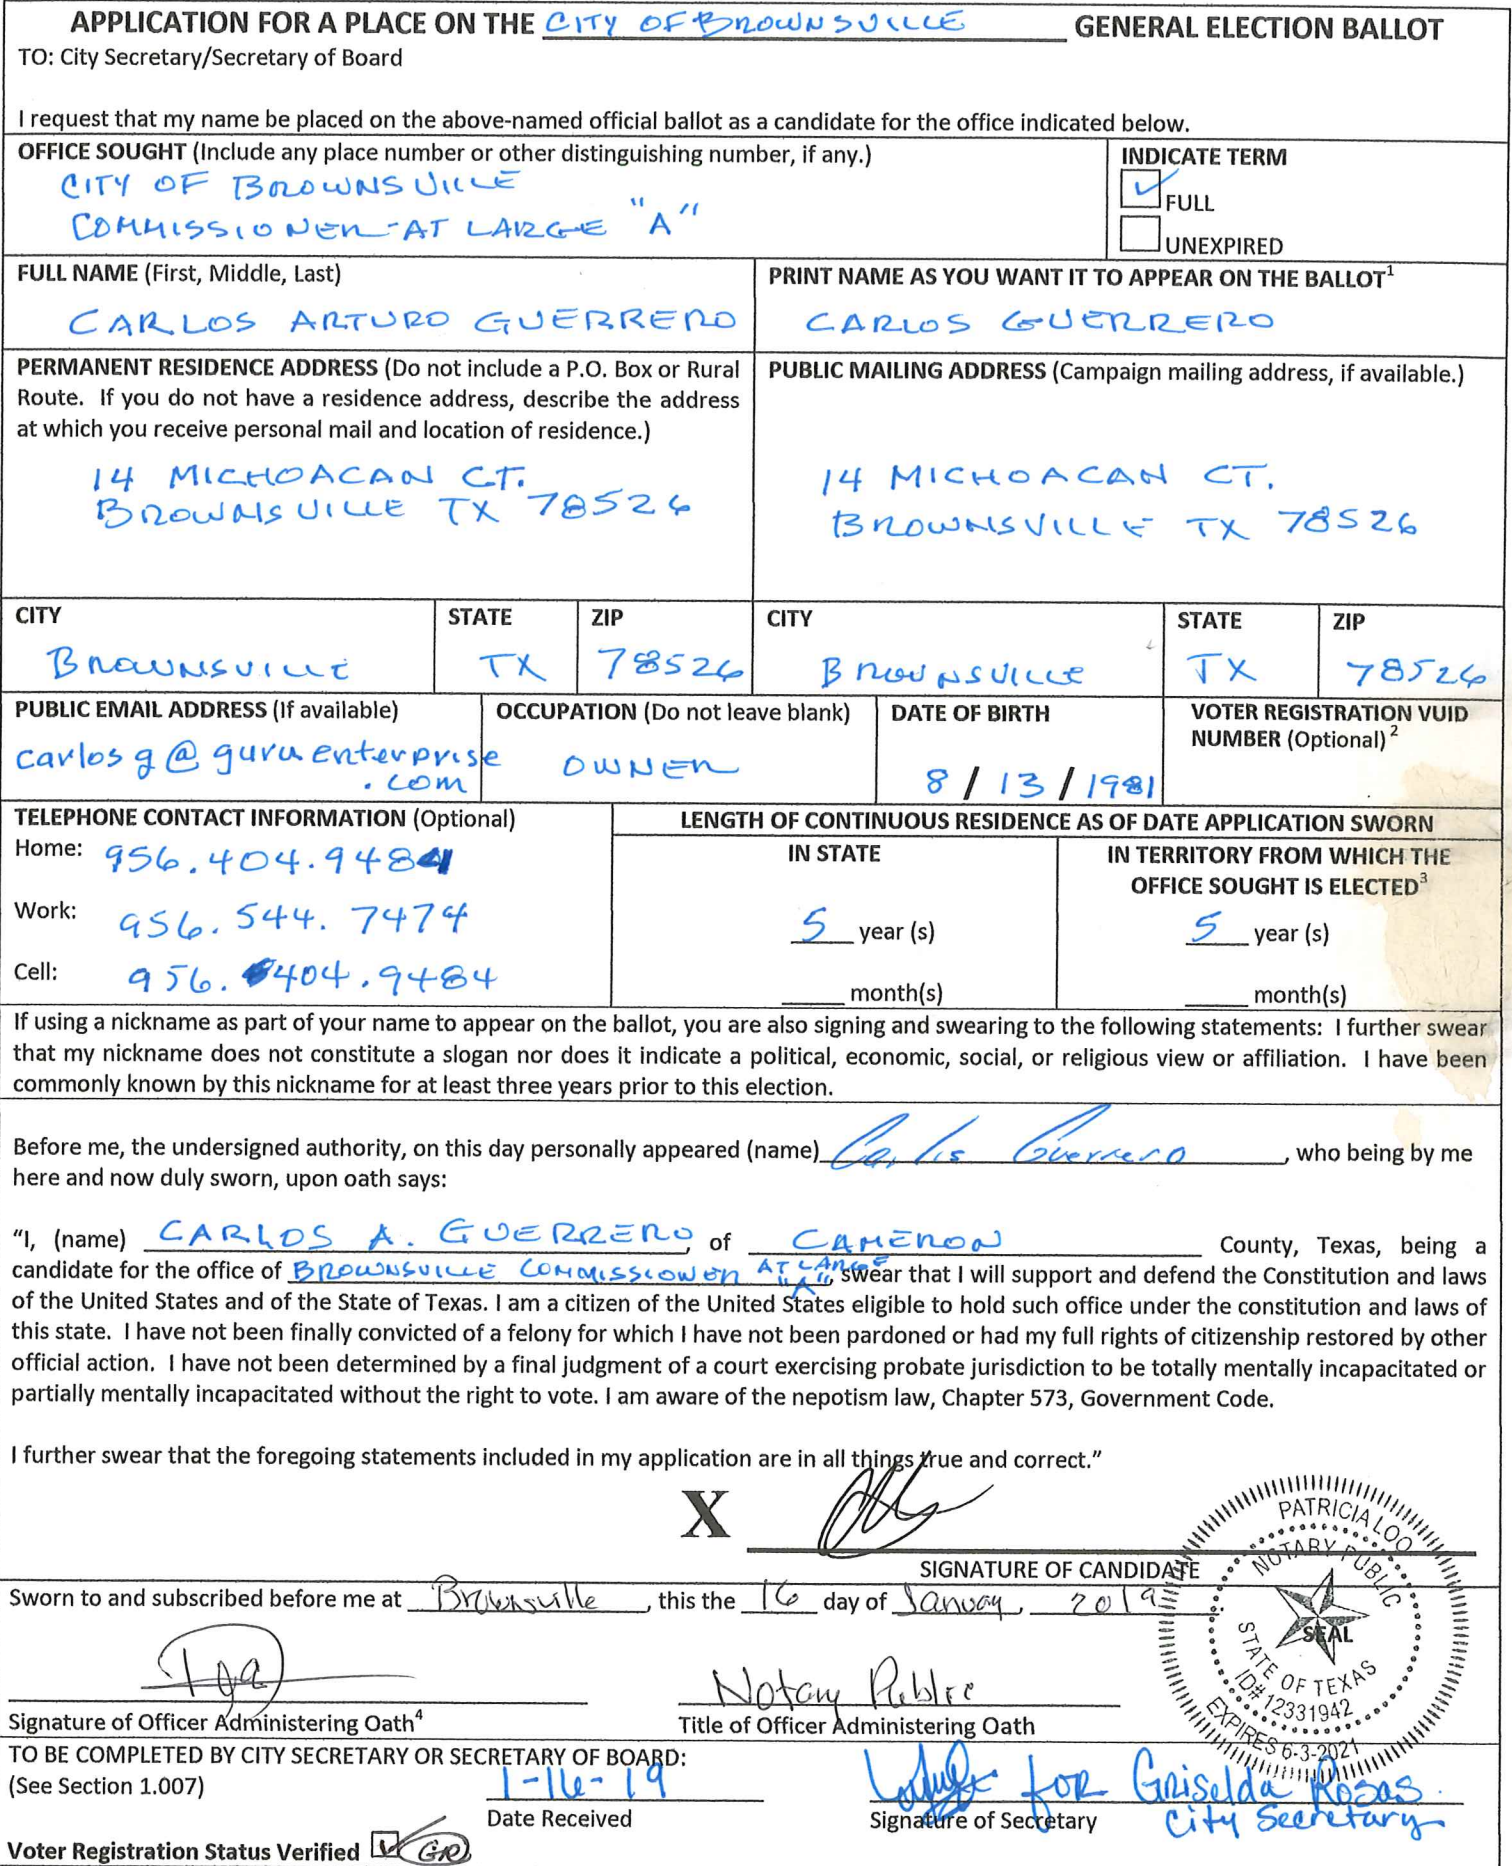 APPLICATION FOR A PLACE ON THE CITY OF BROWNSVILLE GENERAL ELECTION BALLOT
TO: City Secretary/Secretary of Board
I request that my name be placed on the above-named official ballot as a candidate for the office indicated below.
OFFICE SOUGHT (Include any place number or other distinguishing number, if any.)
CITY OF BROWNSVILLE
COMMISSIONER-AT LARGE "A"
INDICATE TERM
FULL
UNEXPIRED
FULL NAME (First, Middle, Last)
CARLOS ARTURO GUERRERO
PRINT NAME AS YOU WANT IT TO APPEAR ON THE BALLOT1
CARLOS GUERRERO
PERMANENT RESIDENCE ADDRESS (Do not include a P.O. Box or Rural
Route. If you do not have a residence address, describe the address
at which you receive personal mail and location of residence.)
14 MICHOACAN CT.
BROWNSVILLE TX 78526
PUBLIC MAILING ADDRESS (Campaign mailing address, if available.)
14 MICHOACAN CT.
BROWNSVILLE TX 78526
CITY STATE ZIP CITY STATE ZIP
BROWNSVILLE TX 78526 BROWNSVILLE TX 78526
PUBLIC EMAIL ADDRESS (If available)
carlosg@guruenterprise
.com
OCCUPATION (Do not leave blank)
OWNER
DATE OF BIRTH
8 / 13 / 1981
VOTER REGISTRATION VUID
NUMBER (Optional) 2
TELEPHONE CONTACT INFORMATION (Optional)
Home: 956.404.9484
Work: 956.544.7474
Cell: 956.404.9484
LENGTH OF CONTINUOUS RESIDENCE AS OF DATE APPLICATION SWORN
IN STATE
5 year (s)
month(s)
IN TERRITORY FROM WHICH THE
OFFICE SOUGHT IS ELECTED3
5 year (s)
month(s)
If using a nickname as part of your name to appear on the ballot, you are also signing and swearing to the following statements: I further swear
that my nickname does not constitute a slogan nor does it indicate a political, economic, social, or religious view or affiliation. I have been
commonly known by this nickname for at least three years prior to this election.
Before me, the undersigned authority, on this day personally appeared (name) Carlos Guerrero, who being by me
here and now duly sworn, upon oath says:
"I, (name) CARLOS A. GUERRERO, of CAMERON County, Texas, being a
candidate for the office of BROWNSVILLE COMMISSIONER AT LARGE "A", swear that I will support and defend the Constitution and laws
of the United States and of the State of Texas. I am a citizen of the United States eligible to hold such office under the constitution and laws of
this state. I have not been finally convicted of a felony for which I have not been pardoned or had my full rights of citizenship restored by other
official action. I have not been determined by a final judgment of a court exercising probate jurisdiction to be totally mentally incapacitated or
partially mentally incapacitated without the right to vote. I am aware of the nepotism law, Chapter 573, Government Code.
I further swear that the foregoing statements included in my application are in all things true and correct."
X
SIGNATURE OF CANDIDATE
PATRICIA LOO
NOTARY PUBLIC
SEAL
STATE OF TEXAS
ID# 12331942
EXPIRES 6-3-2021
Sworn to and subscribed before me at Brownsville, this the 16 day of January, 2019
Notary Public
Signature of Officer Administering Oath4
Title of Officer Administering Oath
TO BE COMPLETED BY CITY SECRETARY OR SECRETARY OF BOARD:
(See Section 1.007)
1-16-19
Date Received
for Griselda Rosas
Signature of Secretary
City Secretary
Voter Registration Status Verified GR